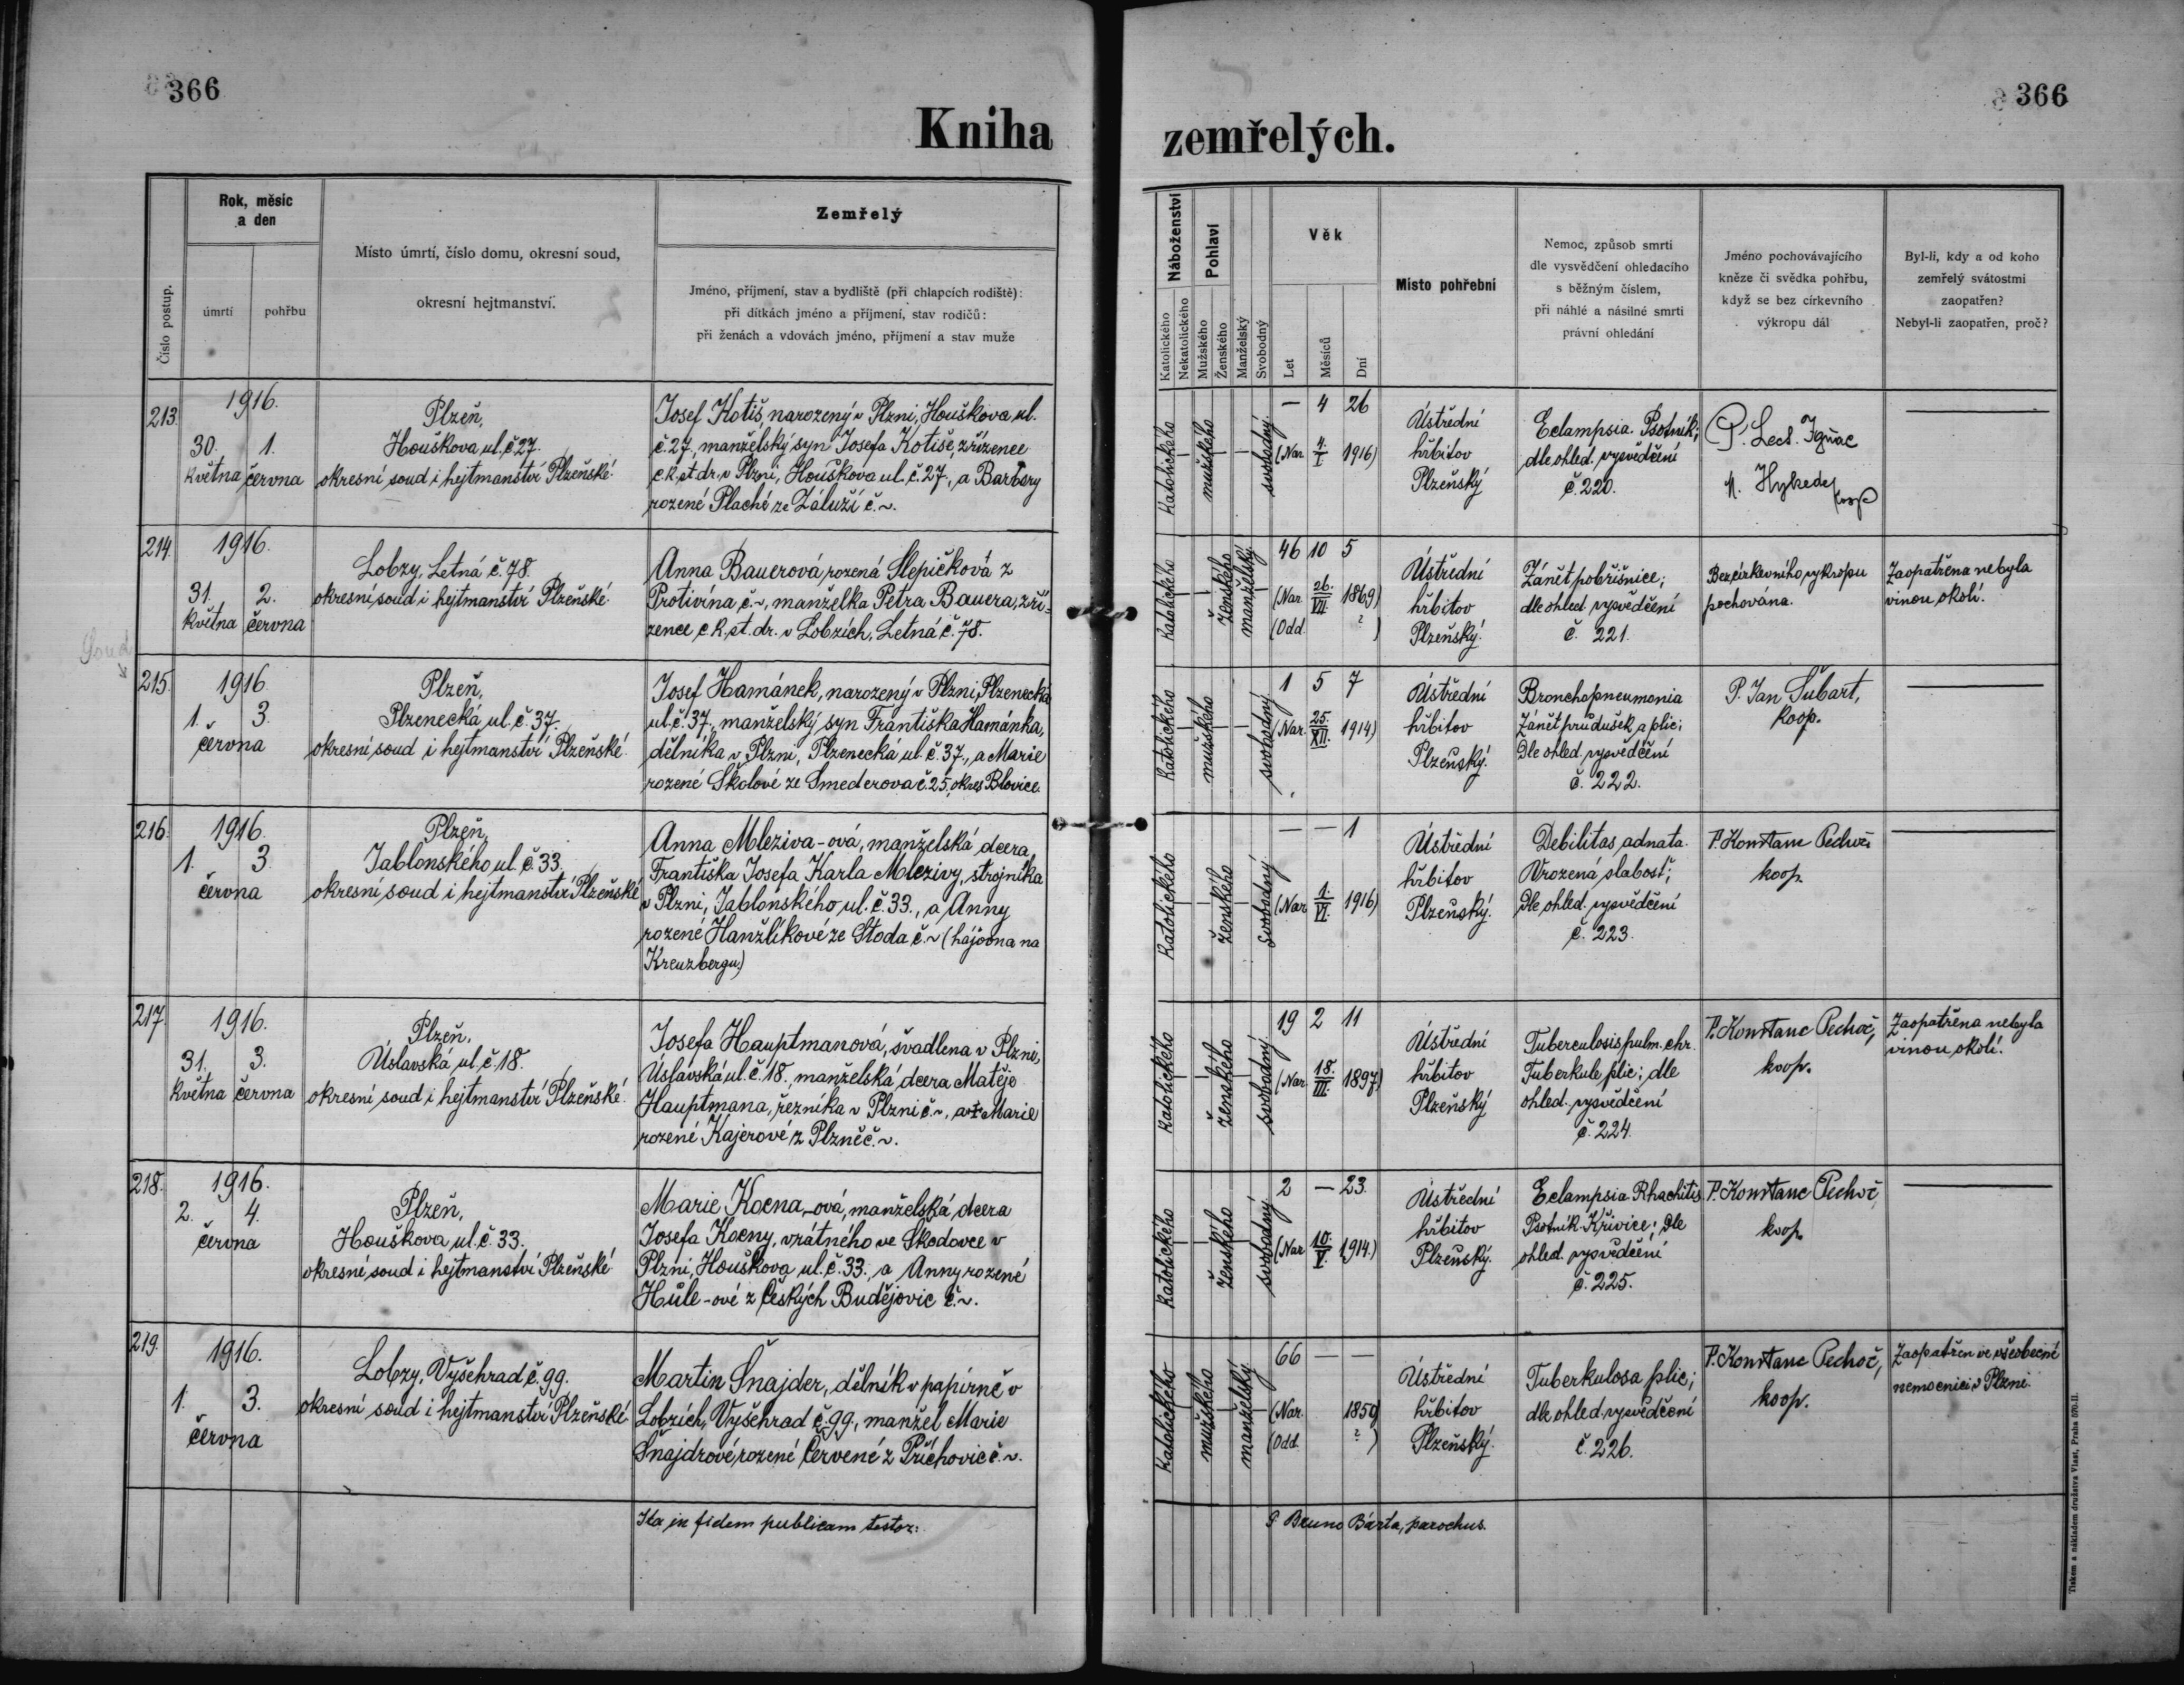 366
Kniha
Číslo postup.
Rok, měsíc
a den
úmrtí
pohřbu
Místo úmrtí, číslo domu, okresní soud,
okresní hejtmanství.
Zemřelý
Jméno, příjmení, stav a bydliště (při chlapcích rodiště):
při dítkách jméno a příjmení, stav rodičů:
při ženách a vdovách jméno, příjmení a stav muže
213.
1916.
30. 1.
května června
Plzeň,
Houškova ul. č 27.
okresní soud i hejtmanství Plzeňské.
Josef Kotiš, narozený v Plzni, Houškova ul.
č. 27, manželský syn Josefa Kotiše, zřízence
c.k. st. dr. v Plzni, Houškova ul. č. 27., a Barbory
rozené Plaché ze Záluží č. ~.
214.
1916.
31. 2.
května června
Lobzy, Letná č. 78.
okresní soud i hejtmanství Plzeňské.
Anna Bauerová, rozená Slepičková z
Protivína č. ~, manželka Petra Bauera, zří-
zence c.k. st. dr. v Lobzích, Letná č. 78.
Soud
215.
1916
1. 3.
června
Plzeň,
Plzenecká ul. č. 37.
okresní soud i hejtmanství Plzeňské.
Josef Hamánek, narozený v Plzni, Plzenecká
ul. č. 37., manželský syn Františka Hamánka,
dělníka v Plzni, Plzenecká ul. č. 37., a Marie
rozené Škalové ze Smederova č. 25, okres Blovice.
216.
1916.
1. 3.
června
Plzeň,
Jablonského ul. č. 33.
okresní soud i hejtmanství Plzeňské
Anna Mleziva-ová, manželská dcera
Františka Josefa Karla Mlezivy, strojníka
v Plzni, Jablonského ul. č. 33., a Anny
rozené Hanžlíkové ze Stoda č. ~ (hájovna na
Kreuzbergu.)
217.
1916.
31. 3.
května června
Plzeň,
Úslavská ul. č. 18.
okresní soud i hejtmanství Plzeňské.
Josefa Hauptmanová, švadlena v Plzni,
Úslavská ul. č. 18., manželská dcera Matěje
Hauptmana, řezníka v Plzni č. ~, a † Marie
rozené Kajerové z Plzně č. ~.
218.
1916.
2. 4.
června
Plzeň,
Houškova ul. č. 33.
okresní soud i hejtmanství Plzeňské
Marie Kocna-ová, manželská dcera
Josefa Kocny, vrátného ve Škodovce v
Plzni, Houškova ul. č. 33., a Anny rozené
Hůle-ové z Českých Budějovic č. ~.
219.
1916.
1. 3.
června
Lobzy, Vyšehrad č. 99.
okresní soud i hejtmanství Plzeňské.
Martin Šnajder, dělník v papírně v
Lobzích, Vyšehrad č. 99, manžel Marie
Šnajdrové, rozené Červené z Příchovic č. ~.
Ita in fidem publicam testor:
366
zemřelých.
Náboženství
Katolického
Nekatolického
Pohlaví
Mužského
Ženského
Manželský
Svobodný
Věk
Let
Měsíců
Dní
Místo pohřební
Nemoc, způsob smrti
dle vysvědčení ohledacího
s běžným číslem,
při náhlé a násilné smrti
právní ohledání
Jméno pochovávajícího
kněze či svědka pohřbu,
když se bez církevního
výkropu dál
Byl-li, kdy a od koho
zemřelý svátostmi
zaopatřen?
Nebyl-li zaopatřen, proč?
Katolického
mužského
svobodný
— 4 26
(Nar. 4./I. 1916)
Ústřední
hřbitov
Plzeňský
Eclampsia. Psotník;
dle ohled. vysvědčení
č. 220.
P. Lect. Ignac
Hykede
koop
Katolického
ženského
manželský
46 10 5
(Nar. 26./VII. 1869)
(Odd. ? )
Ústřední
hřbitov
Plzeňský.
Zánět pobřišnice;
dle ohled. vysvědčení
č. 221.
Bez církevního výkropu
pochována.
Zaopatřena nebyla
vinou okolí.
Katolického
mužského
svobodný
1 5 7
(Nar. 25./XII. 1914)
Ústřední
hřbitov
Plzeňský.
Bronchopneumonia
Zánět průdušek a plic;
Dle ohled. vysvědčení
č. 222.
P. Jan Šubart,
koop.
Katolického
ženského
Svobodný
— — 1
(Nar. 1./VI. 1916)
Ústřední
hřbitov
Plzeňský.
Debilitas adnata.
Vrozená slabost;
Dle ohled. vysvědčení
č. 223.
P. Konstanc Pechoč
koop.
Katolického
ženského
svobodný
19 2 11
(Nar. 18./III. 1897)
Ústřední
hřbitov
Plzeňský
Tuberculosis pulm. chr.
Tuberkule plic; dle
ohled. vysvědčení
č. 224.
P. Konstanc Pechoč,
koop.
Zaopatřena nebyla
vinou okolí.
Katolického
ženského
svobodný
2 — 23.
(Nar. 10./V. 1914.)
Ústřední
hřbitov
Plzeňský.
Eclampsia Rhachitis
Psotník. Křivice; dle
ohled. vysvědčení
č. 225.
P. Konstanc Pechoč
koop.
Katolického
mužského
manželský
66 — —
(Nar. 1850)
(Odd. ? )
Ústřední
hřbitov
Plzeňský.
Tuberkulosa plic;
dle ohled. vysvědčení
č. 226.
P. Konstanc Pechoč,
koop.
Zaopatřen ve všeobecné
nemocnici v Plzni.
P. Bruno Bárta, parochus.
Tiskem a nákladem družstva Vlast, Praha 570-II.